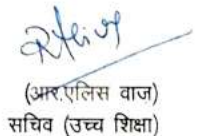 (आर.एलिस वाज)
सचिव (उच्च शिक्षा)